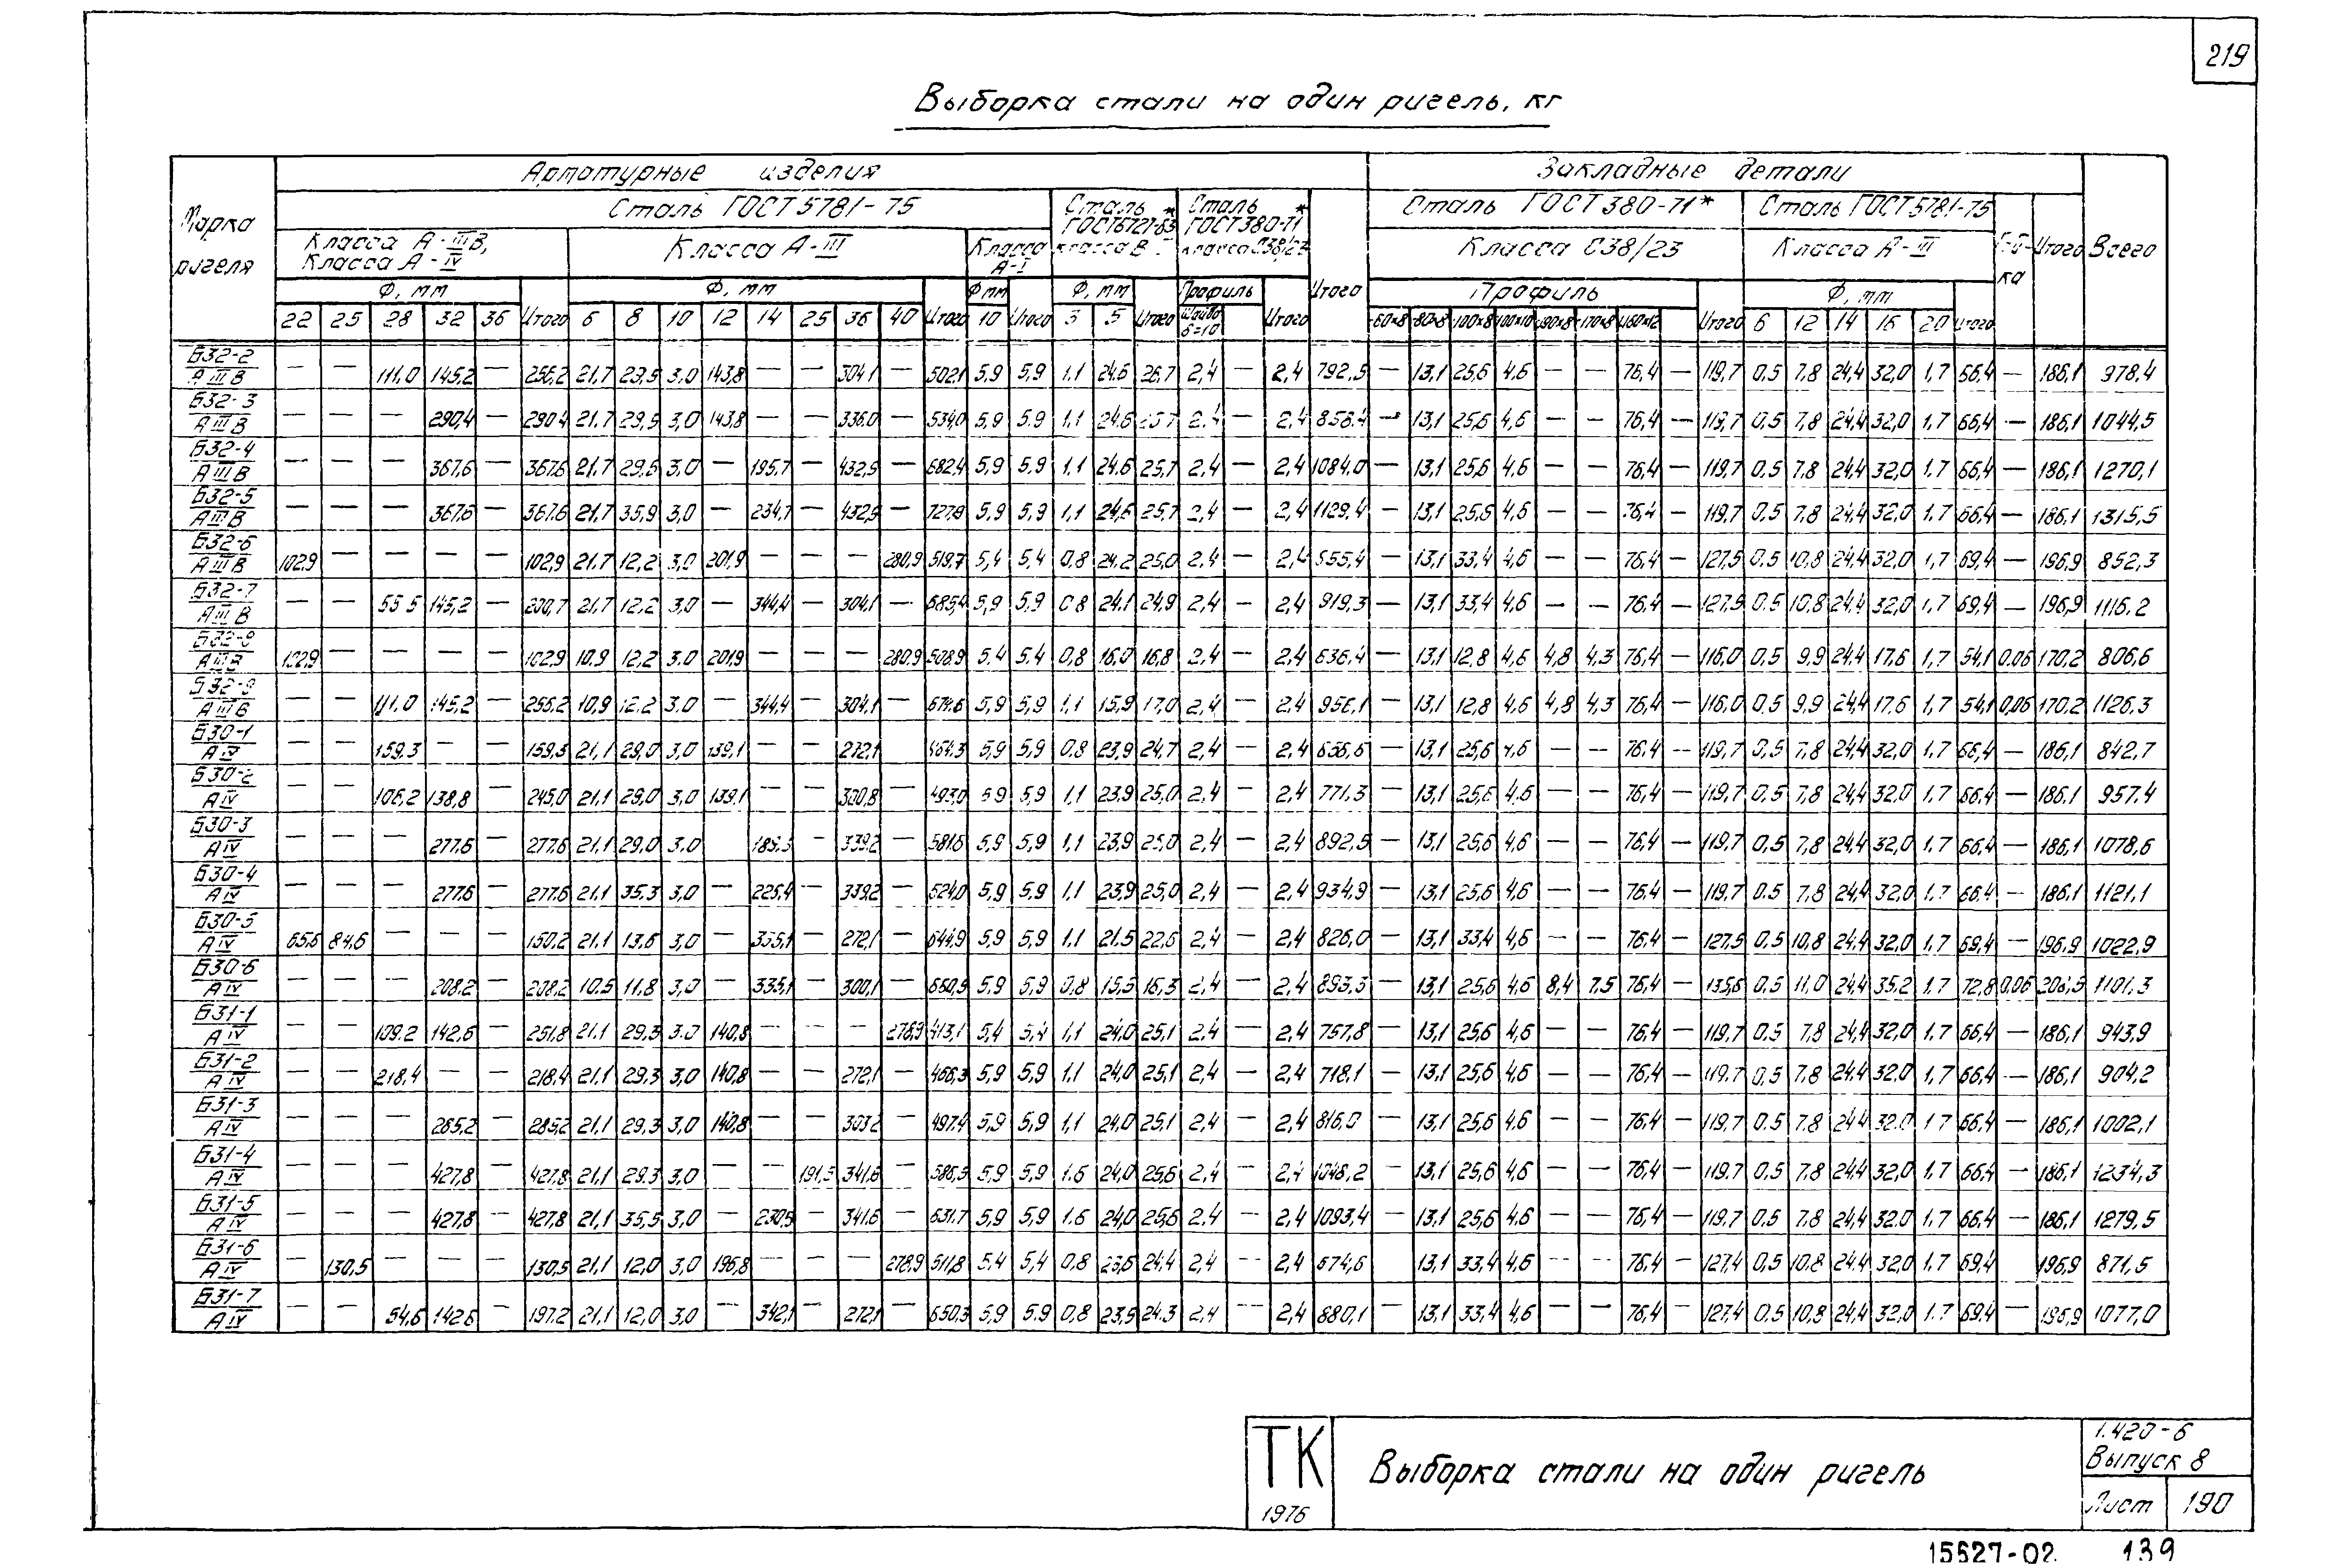 219
Выборка стали на один ригель, кг
Марка ригеля
Арматурные изделия
Закладные детали
Сталь ГОСТ 5781-75
Сталь ГОСТ 380-71*
Сталь ГОСТ 5781-75
Класса А-IIIВ, Класса А-IV
Класса А-III
Класса А-I
Класса С38/23
Класса А-III
Итого Всего
Ф, мм
Ф, мм
Ф мм
Ф, мм
Профиль
Итого
Профиль
Ф, мм
22 25 28 32 36 Итого 6 8 10 12 14 25 36 40 Итого 10 Итого 3 5 Итого Итого Итого 6 12 14 16 20 Итого
Б32-2 АIIIВ — — 111,0 145,2 — 256,2 21,7 3,0 143,8 — — 304,1 — 502,1 5,9 5,9 1,1 24,6 2,4 — 2,4 792,5 — 13,1 25,6 4,6 — — 76,4 — 119,7 0,5 7,8 24,4 32,0 1,7 66,4 — 186,1 978,4
Б32-3 АIIIВ — — — 290,4 — 290,4 21,7 29,5 3,0 143,8 — — 336,0 — 534,0 5,9 5,9 1,1 24,6 2,4 — 2,4 858,4 — 13,1 25,6 4,6 — — 76,4 — 119,7 0,5 7,8 24,4 32,0 1,7 66,4 — 186,1 1044,5
Б32-4 АIIIВ — — — 367,6 — 367,6 21,7 3,0 — 195,7 — 432,5 — 682,4 5,9 5,9 1,1 24,6 25,7 2,4 — 2,4 1084,0 — 13,1 25,6 4,6 — — 76,4 — 119,7 0,5 7,8 24,4 32,0 1,7 66,4 — 186,1 1270,1
Б32-5 АIIIВ — — — 367,6 — 367,6 21,7 35,9 3,0 — 234,7 — — 5,9 5,9 1,1 24,6 25,7 2,4 — 2,4 1129,4 — 13,1 25,6 4,6 — — 76,4 — 119,7 0,5 7,8 24,4 32,0 1,7 66,4 — 186,1 1315,5
Б32-6 АIIIВ 102,9 — — — — 102,9 21,7 12,2 3,0 201,9 — — — 280,9 519,7 5,4 5,4 0,8 24,2 25,0 2,4 — 2,4 — 13,1 33,4 4,6 — — 76,4 — 127,5 0,5 10,8 24,4 32,0 1,7 69,4 — 196,9 852,3
Б32-7 АIIIВ — — 55,5 145,2 — 200,7 21,7 12,2 3,0 — 344,4 — 304,1 — 685,4 5,9 5,9 0,8 24,1 24,9 2,4 — 2,4 919,3 — 13,1 33,4 4,6 — — 76,4 — 127,5 0,5 10,8 24,4 32,0 1,7 69,4 — 196,9 1116,2
АIIIВ 102,9 — — — — 102,9 10,9 12,2 3,0 201,9 — — — 280,9 508,9 5,4 5,4 0,8 16,0 16,8 2,4 — 2,4 636,4 — 13,1 12,8 4,6 4,8 4,3 76,4 — 116,0 0,5 9,9 24,4 17,6 1,7 54,1 0,06 170,2 806,6
Б32-9 АIIIВ — — 111,0 145,2 — 256,2 10,9 12,2 3,0 — 344,4 — 304,1 — 5,9 5,9 1,1 15,9 17,0 2,4 — 2,4 956,1 — 13,1 12,8 4,6 4,8 4,3 76,4 — 116,0 0,5 9,9 24,4 17,6 1,7 54,1 0,06 170,2 1126,3
Б30-1 — — 159,3 — — 159,3 21,1 29,0 3,0 139,1 — — 272,1 — 464,3 5,9 5,9 0,8 23,9 24,7 2,4 — 2,4 656,6 — 13,1 25,6 4,6 — — 76,4 — 119,7 0,5 7,8 24,4 32,0 1,7 66,4 — 186,1 842,7
Б30-2 АIV — — 106,2 138,8 — 245,0 21,1 29,0 3,0 139,1 — — 300,8 — 493,0 5,9 5,9 1,1 23,9 25,0 2,4 — 2,4 771,3 — 13,1 25,6 4,6 — — 76,4 — 119,7 0,5 7,8 24,4 32,0 1,7 66,4 — 186,1 957,4
Б30-3 АIV — — — 277,6 — 277,6 21,1 29,0 3,0 — 339,2 — 581,6 5,9 5,9 1,1 23,9 25,0 2,4 — 2,4 892,5 — 13,1 25,6 4,6 — — 76,4 — 119,7 0,5 7,8 24,4 32,0 1,7 66,4 — 186,1 1078,6
Б30-4 АIV — — — 277,6 — 277,6 21,1 35,3 3,0 — 225,4 — 339,2 — 5,9 5,9 1,1 23,9 25,0 2,4 — 2,4 934,9 — 13,1 25,6 4,6 — — 76,4 — 119,7 0,5 7,8 24,4 32,0 1,7 66,4 — 186,1 1121,1
Б30-5 АIV 65,6 84,6 — — — 150,2 21,1 13,6 3,0 — 335,1 — 272,1 — 644,9 5,9 5,9 1,1 21,5 22,6 2,4 — 2,4 826,0 — 13,1 33,4 4,6 — — 76,4 — 127,5 0,5 10,8 24,4 32,0 1,7 69,4 — 196,9 1022,9
Б30-6 АIV — — — 208,2 — 208,2 10,5 11,8 3,0 — 335,1 — 300,1 — 660,5 5,9 5,9 0,8 15,5 16,3 2,4 — 2,4 893,3 — 13,1 25,6 4,6 8,4 7,5 76,4 — 135,6 0,5 11,0 24,4 35,2 1,7 72,8 0,06 1101,3
Б31-1 АIV — — 109,2 142,6 — 251,8 21,1 29,3 3,0 140,8 — — — 278,9 5,4 5,4 1,1 24,0 25,1 2,4 — 2,4 757,8 — 13,1 25,6 4,6 — — 76,4 — 119,7 0,5 7,8 24,4 32,0 1,7 66,4 — 186,1 943,9
Б31-2 АIV — — 218,4 — — 218,4 21,1 29,3 3,0 140,8 — — 272,1 — 466,3 5,9 5,9 1,1 24,0 25,1 2,4 — 2,4 718,1 — 13,1 25,6 4,6 — — 76,4 — 119,7 0,5 7,8 24,4 32,0 1,7 66,4 — 186,1 904,2
Б31-3 АIV — — — 285,2 — 285,2 21,1 29,3 3,0 140,8 — — 303,2 — 497,4 5,9 5,9 1,1 24,0 25,1 2,4 — 2,4 816,0 — 13,1 25,6 4,6 — — 76,4 — 119,7 0,5 7,8 24,4 32,0 1,7 66,4 — 186,1 1002,1
Б31-4 АIV — — — 427,8 — 427,8 21,1 29,3 3,0 — — 191,5 341,6 — 586,5 5,9 5,9 1,6 24,0 25,6 2,4 — 2,4 1048,2 — 13,1 25,6 4,6 — — 76,4 — 119,7 0,5 7,8 24,4 32,0 1,7 66,4 — 186,1 1234,3
Б31-5 АIV — — — 427,8 — 427,8 21,1 35,5 3,0 — 230,5 — 341,6 — 631,7 5,9 5,9 1,6 24,0 25,6 2,4 — 2,4 1093,4 — 13,1 25,6 4,6 — — 76,4 — 119,7 0,5 7,8 24,4 32,0 1,7 66,4 — 186,1 1279,5
Б31-6 АIV — 130,5 — — — 130,5 21,1 12,0 3,0 196,8 — — — 278,9 511,8 5,4 5,4 0,8 23,6 24,4 2,4 — 2,4 674,6 13,1 33,4 4,6 — — 76,4 — 127,4 0,5 10,8 24,4 32,0 1,7 69,4 196,9 871,5
Б31-7 АIV — — 54,6 142,6 — 197,2 21,1 12,0 3,0 — 342,1 — 272,1 — 650,3 5,9 5,9 0,8 23,5 24,3 2,4 — 2,4 880,1 — 13,1 33,4 4,6 — — 76,4 — 127,4 0,5 10,8 24,4 32,0 1,7 69,4 — 196,9 1077,0
ТК
1976
Выборка стали на один ригель
1.420-6
Выпуск 8
Лист 190
15527-02 139